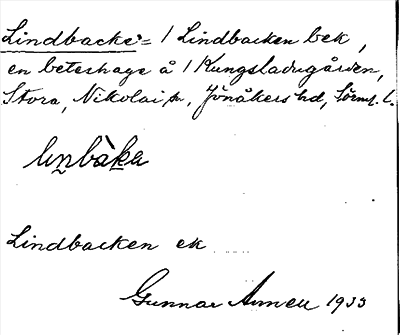 Lindbacke = / Lindbacken bek,
en beteshage å / Kungsladugården,
Stora, Nikolai sn, Jönåkers hd, Sörml. l.
liṉbàḵa
Lindbacken ek
Gunnar 1933